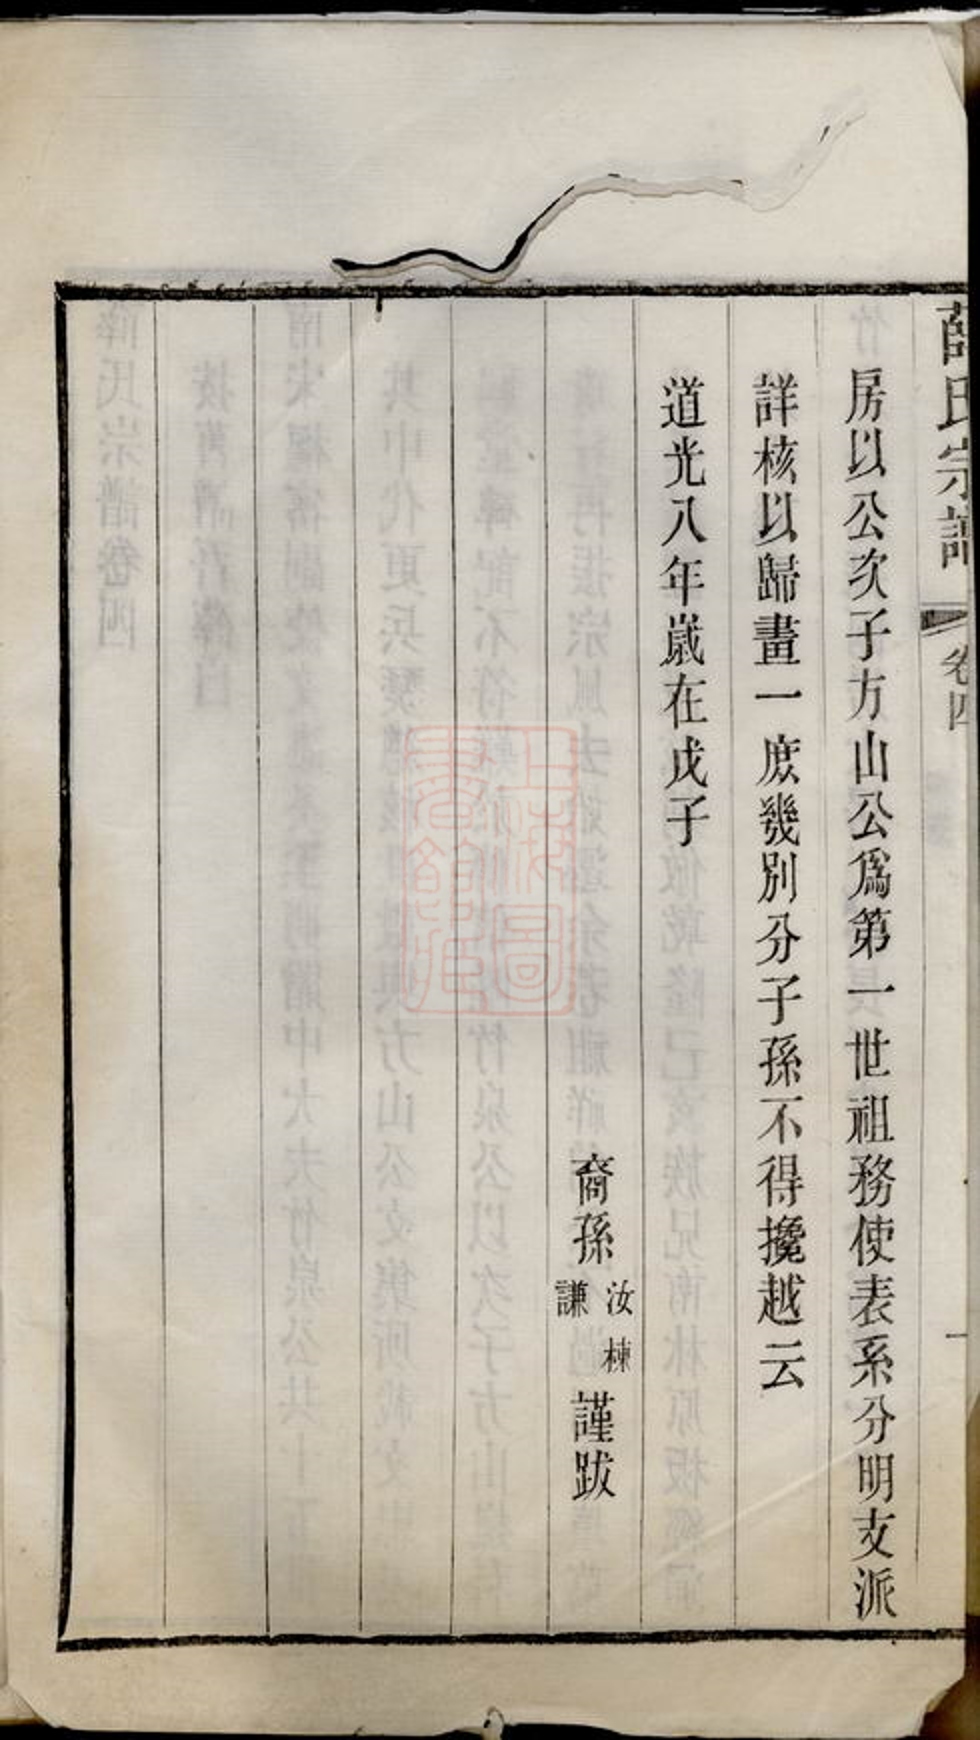 薛氏宗譜 卷四 一
房以公次子方山公爲第一世祖務使表系分明支派
詳核以歸畫一庶幾別分子孫不得攙越云
道光八年歲在戊子
裔孫汝楝謙謹跋
上海圖書館藏